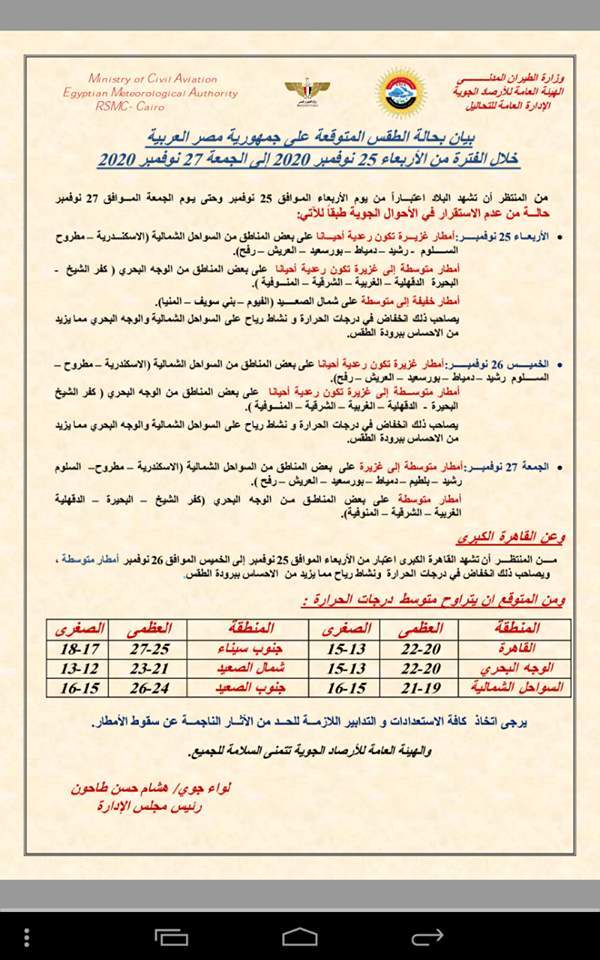 Ministry of Civil Aviation
Egyptian Meteorological Authority
RSMC- Cairo
وزارة الطيران المدنى
الهيئة العامة للأرصاد الجوية
الإدارة العامة للتحاليل
بيان بحالة الطقس المتوقعة على جمهورية مصر العربية
خلال الفترة من الأربعاء 25 نوفمبر 2020 إلى الجمعة 27 نوفمبر 2020
من المنتظر أن تشهد البلاد اعتباراً من يوم الأربعاء الموافق 25 نوفمبر وحتى يوم الجمعة الموافق 27 نوفمبر
حالة من عدم الاستقرار في الأحوال الجوية طبقاً للآتي:
• الأربعاء 25 نوفمبر:أمطار غزيرة تكون رعدية أحياناً على بعض المناطق من السواحل الشمالية (الاسكندرية – مطروح
السلوم - رشيد – دمياط – بورسعيد – العريش – رفح).
أمطار متوسطة إلى غزيرة تكون رعدية أحيانا على بعض المناطق من الوجه البحري ( كفر الشيخ -
البحيرة الدقهلية – الغربية – الشرقية – المنوفية ).
أمطار خفيفة إلى متوسطة على شمال الصعيد (الفيوم – بني سويف – المنيا).
يصاحب ذلك انخفاض في درجات الحرارة و نشاط رياح على السواحل الشمالية والوجه البحري مما يزيد
من الاحساس ببرودة الطقس.
• الخميس 26 نوفمبر:أمطار غزيرة تكون رعدية أحيانا على بعض المناطق من السواحل الشمالية (الاسكندرية – مطروح –
السلوم رشيد – دمياط – بورسعيد – العريش – رفح).
أمطار متوسطة إلى غزيرة تكون رعدية أحيانا على بعض المناطق من الوجه البحري ( كفر الشيخ
البحيرة - الدقهلية – الغربية – الشرقية – المنوفية ).
يصاحب ذلك انخفاض في درجات الحرارة و نشاط رياح على السواحل الشمالية والوجه البحري مما يزيد
من الاحساس ببرودة الطقس.
• الجمعة 27 نوفمبر:أمطار متوسطة إلى غزيرة على بعض المناطق من السواحل الشمالية (الاسكندرية – مطروح– السلوم
رشيد – بلطيم – دمياط – بورسعيد – العريش – رفح ).
أمطار متوسطة على بعض المناطق من الوجه البحري (كفر الشيخ – البحيرة – الدقهلية
الغربية – الشرقية – المنوفية).
وعن القاهرة الكبرى
من المنتظر أن تشهد القاهرة الكبرى اعتبار من الأربعاء الموافق 25 نوفمبر إلى الخميس الموافق 26 نوفمبر أمطار متوسطة ،
ويصاحب ذلك انخفاض في درجات الحرارة ونشاط رياح مما يزيد من الاحساس ببرودة الطقس.
ومن المتوقع ان يتراوح متوسط درجات الحرارة :
المنطقة العظمى الصغرى المنطقة العظمى الصغرى
القاهرة 22-20 15-13 جنوب سيناء 27-25 18-17
الوجه البحري 22-20 15-13 شمال الصعيد 23-21 13-12
السواحل الشمالية 21-19 16-15 جنوب الصعيد 26-24 16-15
يرجى اتخاذ كافة الاستعدادات و التدابير اللازمة للحد من الأثار الناجمة عن سقوط الأمطار.
والهيئة العامة للأرصاد الجوية تتمنى السلامة للجميع.
لواء جوي/ هشام حسن طاحون
رئيس مجلس الإدارة